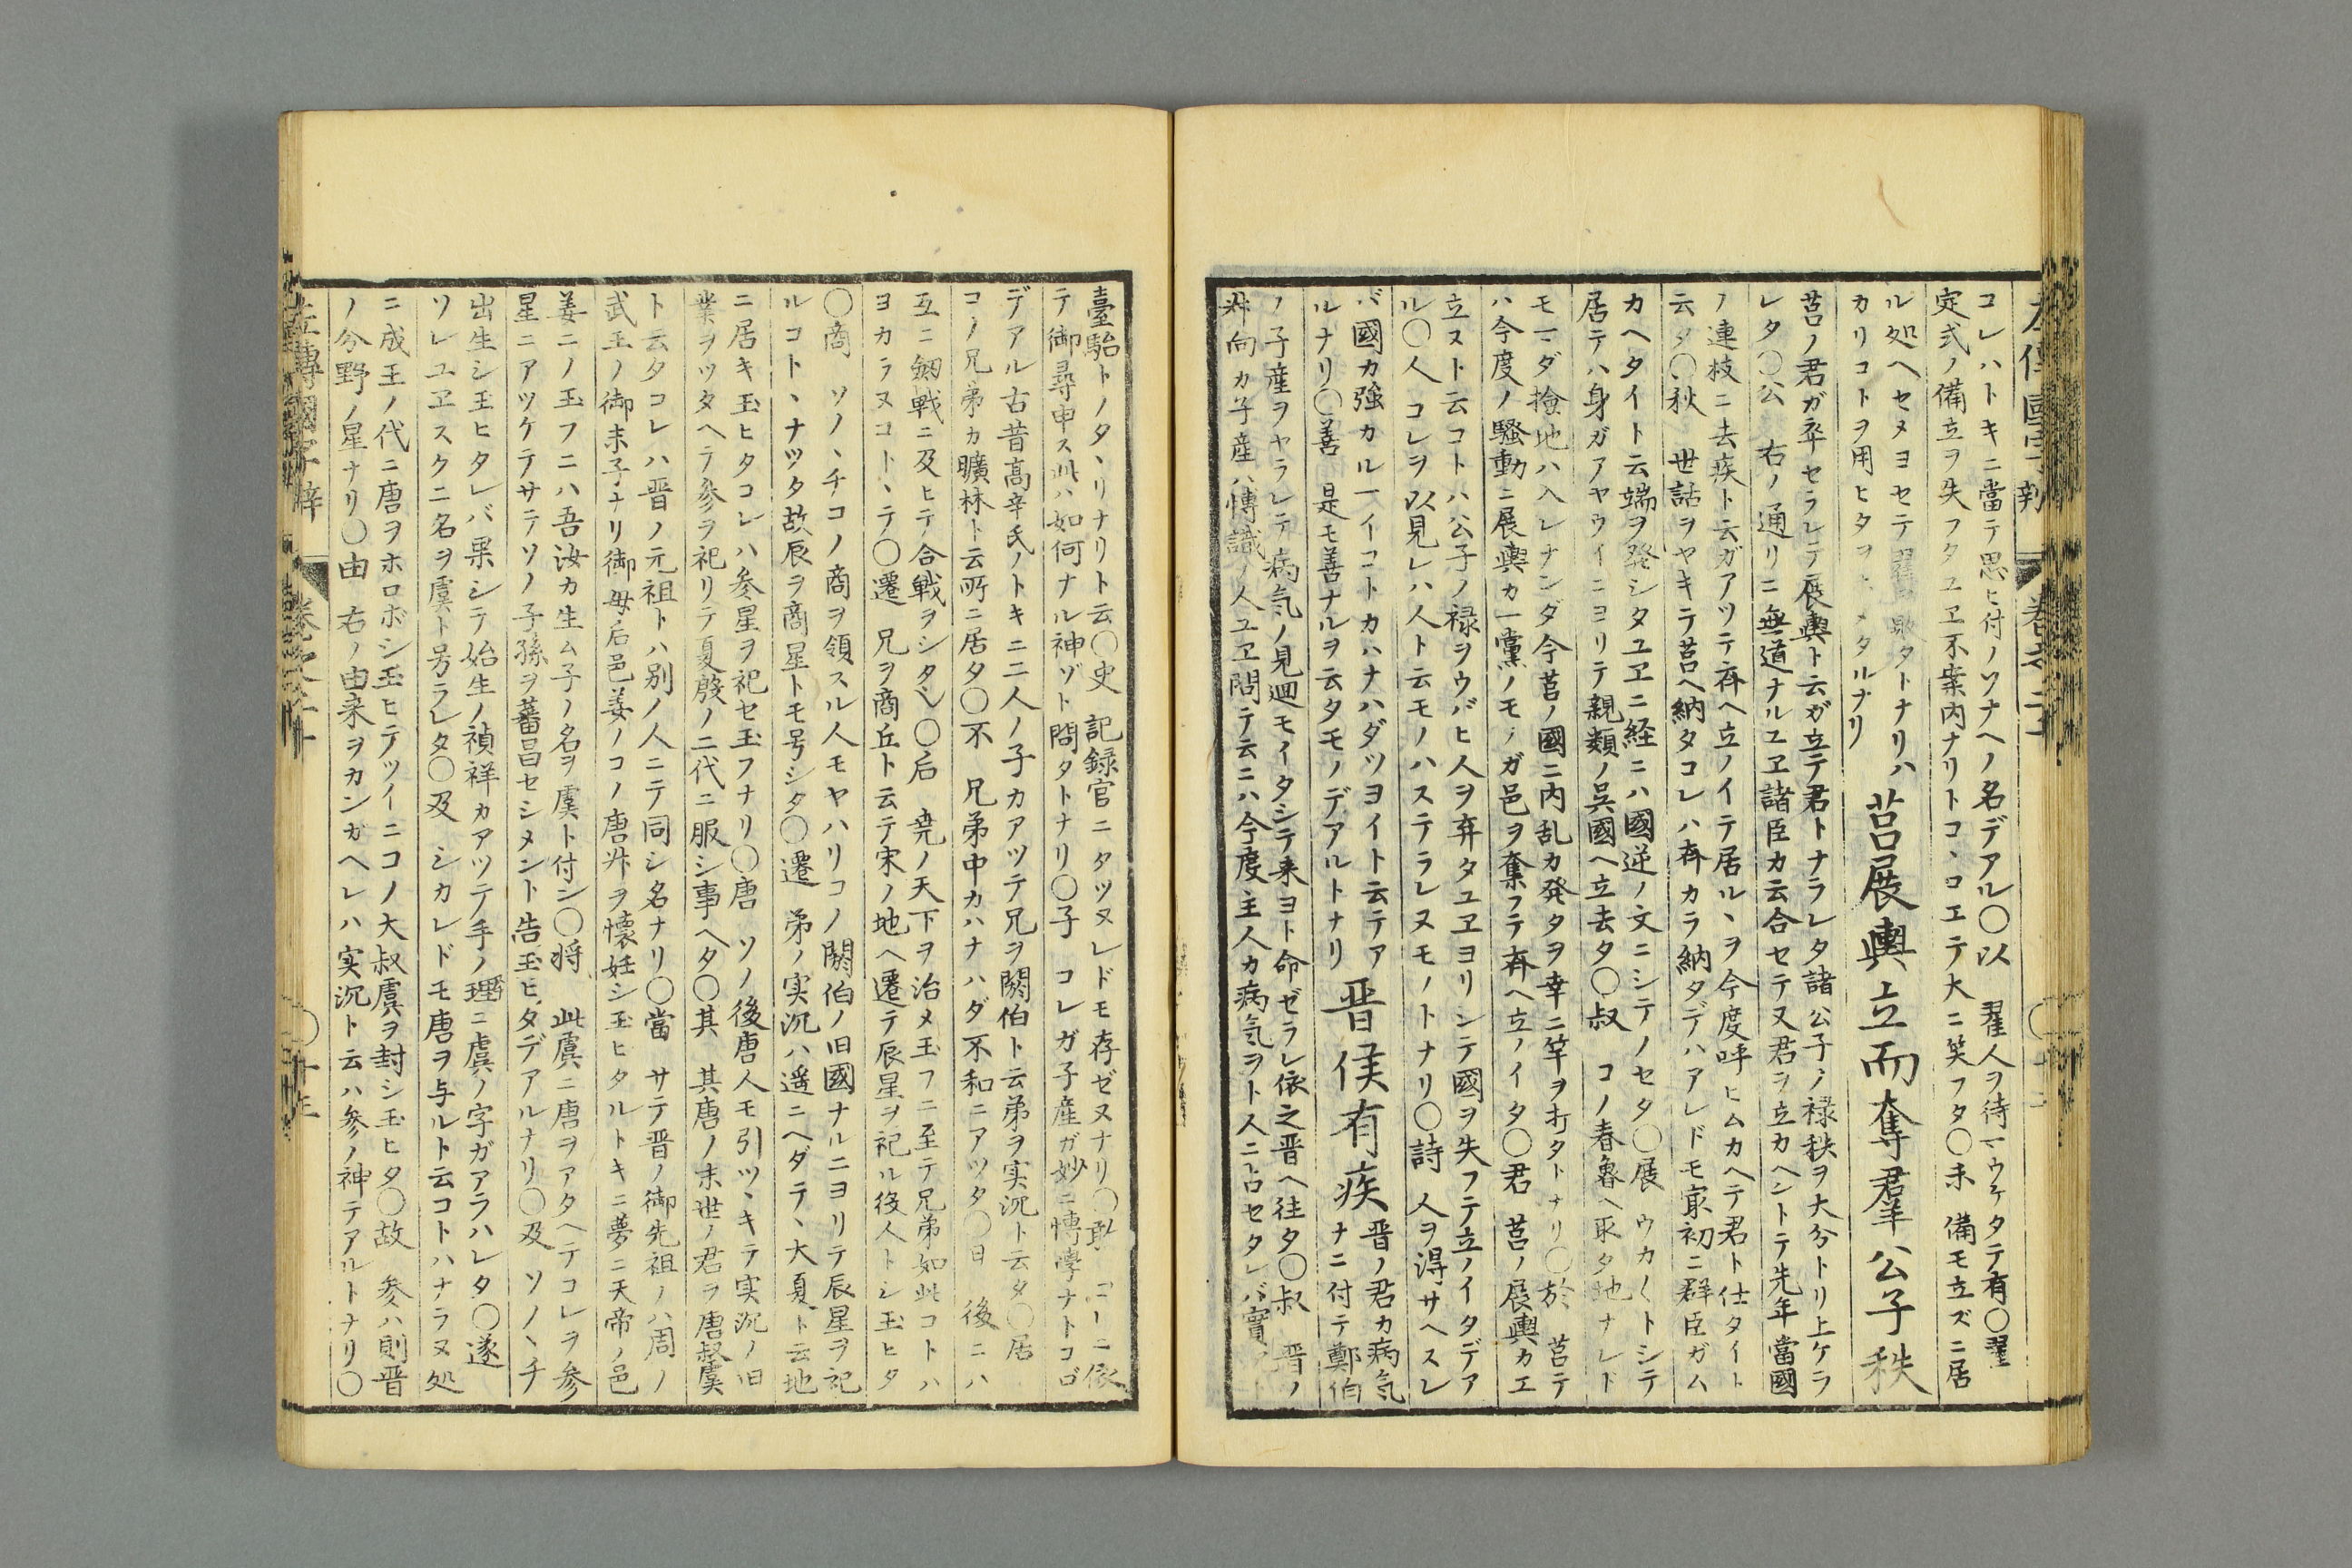 コレハトキニ當テ思ヒ付ノソナヘノ名デアル〇以 翟人ヲ待マウケタテ有〇翟
定式ノ備立ヲ失フタユヱ不案内ナリトコヽロエテ大ニ笑フタ〇未 備モ立ズニ居
ル処ヘセメヨセテ翟タトナリハ
カリコトヲ用ヒタヲメタルナリ
莒展輿立而奪羣公子秩
莒ノ君ガ卒セラレテ展輿ト云ガ立テ君トナラレタ諸公子ノ禄秩ヲ大分トリ上ケラ
レタ〇公 右ノ通リニ無道ナルユヱ諸臣カ云合セテ又君ヲ立カヘントテ先年當國
ノ連枝ニ去疾ト云ガアツテ斉ヘ立ノイテ居ルヽヲ今度呼ヒムカヘテ君ト仕タイト
云タ〇秋 世話ヲヤキテ莒ヘ納タコレハ斉カラ納タデハアレドモ最初ニ群臣ガム
カヘタイト云端ヲ発シタユヱニ経ニハ國逆ノ文ニシテノセタ〇展 ウカ〱トシテ
居テハ身ガアヤウイニヨリテ親類ノ呉國ヘ立去タ〇叔 コノ春魯ヘ取タ地ナレド
モマダ撿地ハ入レナンダ今莒ノ國ニ内乱カ発タヲ幸ニ竿ヲ打タトナリ〇於 莒テ
ハ今度ノ騒動ニ展輿カ一黨ノモノガ邑ヲ奪フテ斉ヘ立ノイタ〇君 莒ノ展輿カエ
立ヌト云コトハ公子ノ禄ヲウバヒ人ヲ弃タユヱヨリシテ國ヲ失フテ立ノイタデア
ル〇人 コレヲ以見レハ人ト云モノハステラレヌモノトナリ〇詩 人ヲ得サヘスレ
バ國カ強カルマイコトカハナハダツヨイト云テア
ルナリ〇善 是モ善ナルヲ云タモノデアルトナリ
晋侯有疾
晋ノ君カ病気
ナニ付テ鄭伯
ノ子産ヲヤラレテ病気ノ見廻モイタシテ来ヨト命ゼラレ依之晋ヘ往タ〇叔 晋ノ
叔向カ子産ハ博識ノ人ユヱ問テ云ニハ今度主人カ病気ヲト人ニ占セタレバ實
臺駘トノタヽリナリト云〇史 記録官ニタツヌレドモ存ゼヌナリ〇敢 コヽニ依
テ御尋申ス此ハ如何ナル神ゾト問タトナリ〇子 コレガ子産ガ妙ニ博學ナトコロ
デアル古昔高辛氏ノトキニ二人ノ子カアツテ兄ヲ閼伯ト云弟ヲ実沉ト云タ〇居
コノ兄弟カ曠林ト云所ニ居タ〇不 兄弟中カハナハダ不和ニアツタ〇日 後ニハ
互ニ刼戦ニ及ヒテ合戦ヲシタ〇后 尭ノ天下ヲ治メ玉フニ至テ兄弟如此コトハ
ヨカラヌコトヽテ〇遷 兄ヲ商丘ト云テ宋ノ地ヘ遷テ辰星ヲ祀ル役人トシ玉ヒタ
〇商 ソノヽチコノ商ヲ領スル人モヤハリコノ閼伯ノ旧國ナルニヨリテ辰星ヲ祀
ルコトヽナツタ故辰ヲ商星トモ号シタ〇遷 弟ノ実沉ハ遥ニヘダテヽ大夏ト云地
ニ居キ玉ヒタコレハ参星ヲ祀セ玉フナリ〇唐 ソノ後唐人モ引ツヽキテ実沉ノ旧
業ヲツタヘテ参ヲ祀リテ夏殷ノ二代ニ服シ事ヘタ〇其 其唐ノ末世ノ君ヲ唐叔虞
ト云タコレハ晋ノ元祖トハ別ノ人ニテ同シ名ナリ〇當 サテ晋ノ御先祖ノハ周ノ
武王ノ御末子ナリ御母后邑姜ノコノ唐叔ヲ懐妊シ玉ヒタルトキニ夢ニ天帝ノ邑
姜ニノ玉フニハ吾汝カ生ム子ノ名ヲ虞ト付シ〇将 此虞ニ唐ヲアタヘテコレヲ参
星ニアツケテサテソノ子孫ヲ蕃昌セシメント告玉ヒタデアルナリ〇及 ソノヽチ
出生シ玉ヒタレバ果シテ始生ノ禎祥カアツテ手ノ理ニ虞ノ字ガアラハレタ〇遂
ソレユヱスクニ名ヲ虞ト号ラレタ〇及 シカレドモ唐ヲ与ルト云コトハナラヌ処
ニ成王ノ代ニ唐ヲホロボシ玉ヒテツイニコノ大叔虞ヲ封シ玉ヒタ〇故 参ハ則晋
ノ分野ノ星ナリ〇由 右ノ由来ヲカンガヘレハ実沉ト云ハ参ノ神テアルトナリ〇